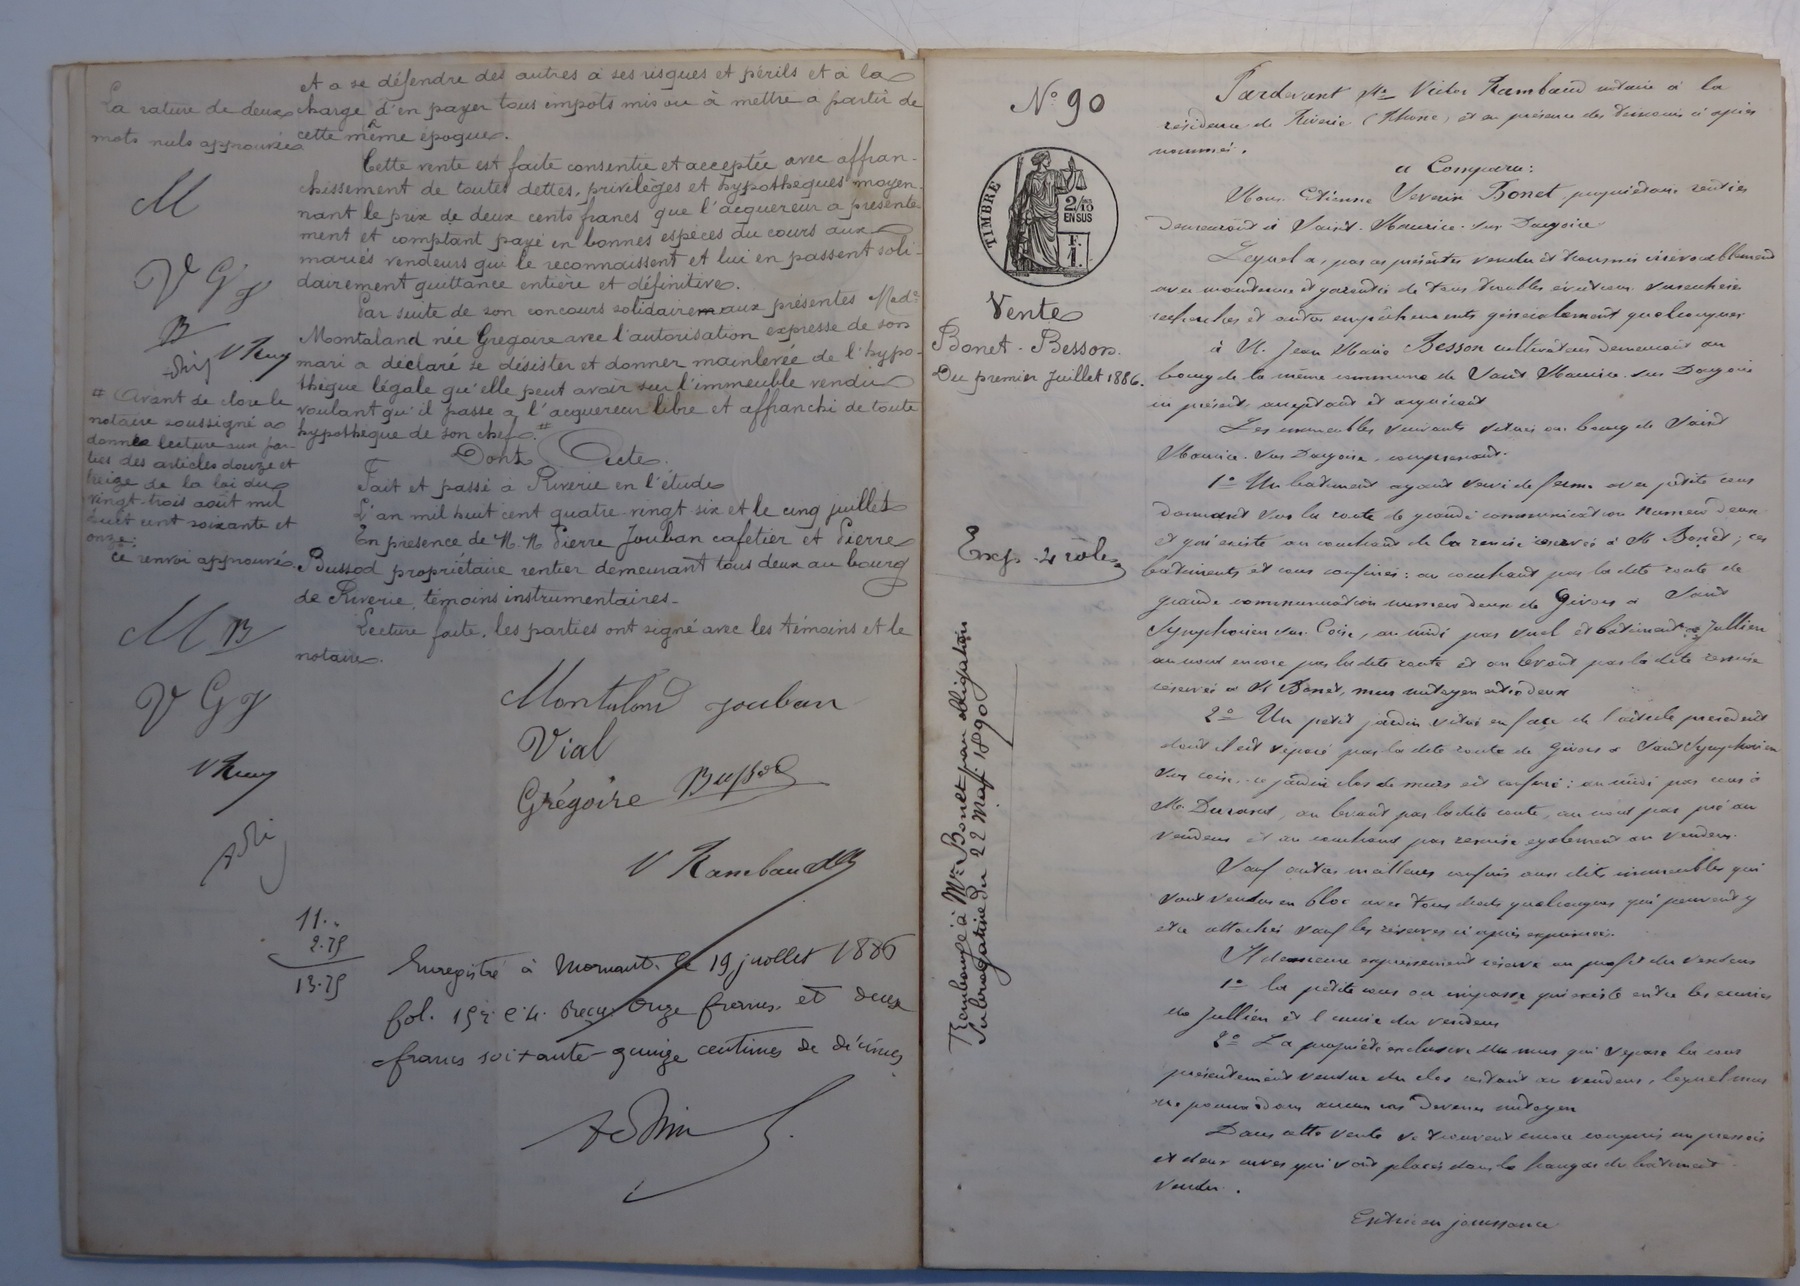 et a se défendre des autres à ses risques et périls et à la
charge d'en payer tous impôts mis ou à mettre a partir de
cette même époque.
Cette vente est faite consentie et acceptée avec affran-
chissement de toutes dettes, privilèges et hypothèques moyen-
nant le prix de deux cents francs que l'acquereur a présente
ment et comptant payé en bonnes espèces du cours aux
mariés vendeurs qui le reconnaissent et lui en passent soli-
dairement quittance entière et définitive.
Par suite de son concours solidaire aux présentes Made
Montaland née Grégoire avec l'autorisation expresse de son
mari a déclaré se désister et donner mainlevée de l'hypo-
thèque légale qu'elle peut avoir sur l'immeuble vendu
voulant qu'il passe a l'acquereur libre et affranchi de toute
hypothèque de son chef. #
Dont Acte.
Fait et passé à Riverie en l'étude
L'an mil huit cent quatre-vingt six et le cinq juillet
En présence de M. M Pierre Jouban cafetier et Pierre
Bussod propriétaire rentier demeurant tous deux au bourg
de Riverie, témoins instrumentaires.
Lecture faite, les parties ont signé avec les témoins et le
notaire.
La rature de deux
mots nuls approuvée
M
V G J
B
V Ramb
# Avant de clore le
notaire soussigné a
donné lecture aux par-
ties des articles douze et
treize de la loi du
vingt-trois août mil
huit cent soixante et
onze.
ce renvoi approuvé
M B
V G J
Montaland Jouban
Vial
Grégoire Bussod
V Rambaud
11.
2.75
13.75
Enregistré à Mornant le 19 juillet 1886
fol. 15 c 4. Reçu onze francs et deux
francs soixante-quinze centimes de décimes
N° 90
TIMBRE
2/10
EN SUS
F.
1.
Vente
Bonet - Besson.
Du premier Juillet 1886.
Exp. 4 rôles
Rambaud à Mr Bonet par obligation
subrogative du 22 Mars 1890
Pardevant Me Victor Rambaud notaire à la
résidence de Riverie (Rhône) et en présence des témoins ci après
nommés.
a Comparu:
Mons. Etienne Séverin Bonet, propriétaire rentier
demeurant à Saint-Maurice-sur Dargoire
Lequel a, par ces présentes vendu et transmis irrévocablement
avec maintenue et garantie de tous troubles évictions surenchères
recherches et autres empêchements généralement quelconques
à M. Jean Marie Besson cultivateur demeurant au
bourg de la même commune de Saint Maurice sur Dargoire
ici présent, acceptant et acquérant
Les immeubles suivants situés au bourg de Saint
Maurice-sur Dargoire, comprenant.
1° Un batiment ayant servi de ferme avec petite cour
donnant sur la route de grande communication numéro deux
et qui existe au couchant de la remise réservée à M Bonet; ces
batiments et cour confinés: au couchant par la dite route de
grande communication numéro deux de Givors à Saint
Symphorien sur Coise, au midi par sud et batiment de Jullien
au nord encore par la dite route et au levant par la dite remise
réservée à M Bonet, mur mitoyen entre deux
2° Un petit jardin situé en face de l'article précédent
dont il est séparé par la dite route de Givors à Saint Symphorien
sur coise, ce jardin clos de murs est confiné: au midi par cour à
M. Durand, au levant par la dite route, au nord par pré au
vendeur et au couchant par remise également au vendeur.
Sauf autres meilleurs confins aux dits immeubles qui
sont vendus en bloc avec tous droits quelconques qui peuvent y
etre attachés sauf les réserves ci après exprimées.
Il demeure expressément réservé au profit du vendeur
1° la petite cour ou impasse qui existe entre les écuries
de Jullien et l'écurie du vendeur
2° La propriété exclusive du mur qui sépare la cour
présentement vendue du clos restant au vendeur, lequel mur
ne pourra dans aucun cas devenir mitoyen
Dans cette vente se trouvent encore compris un pressoir
et deux cuves qui sont placés dans le hangar du batiment
vendu.
Entrée en jouissance